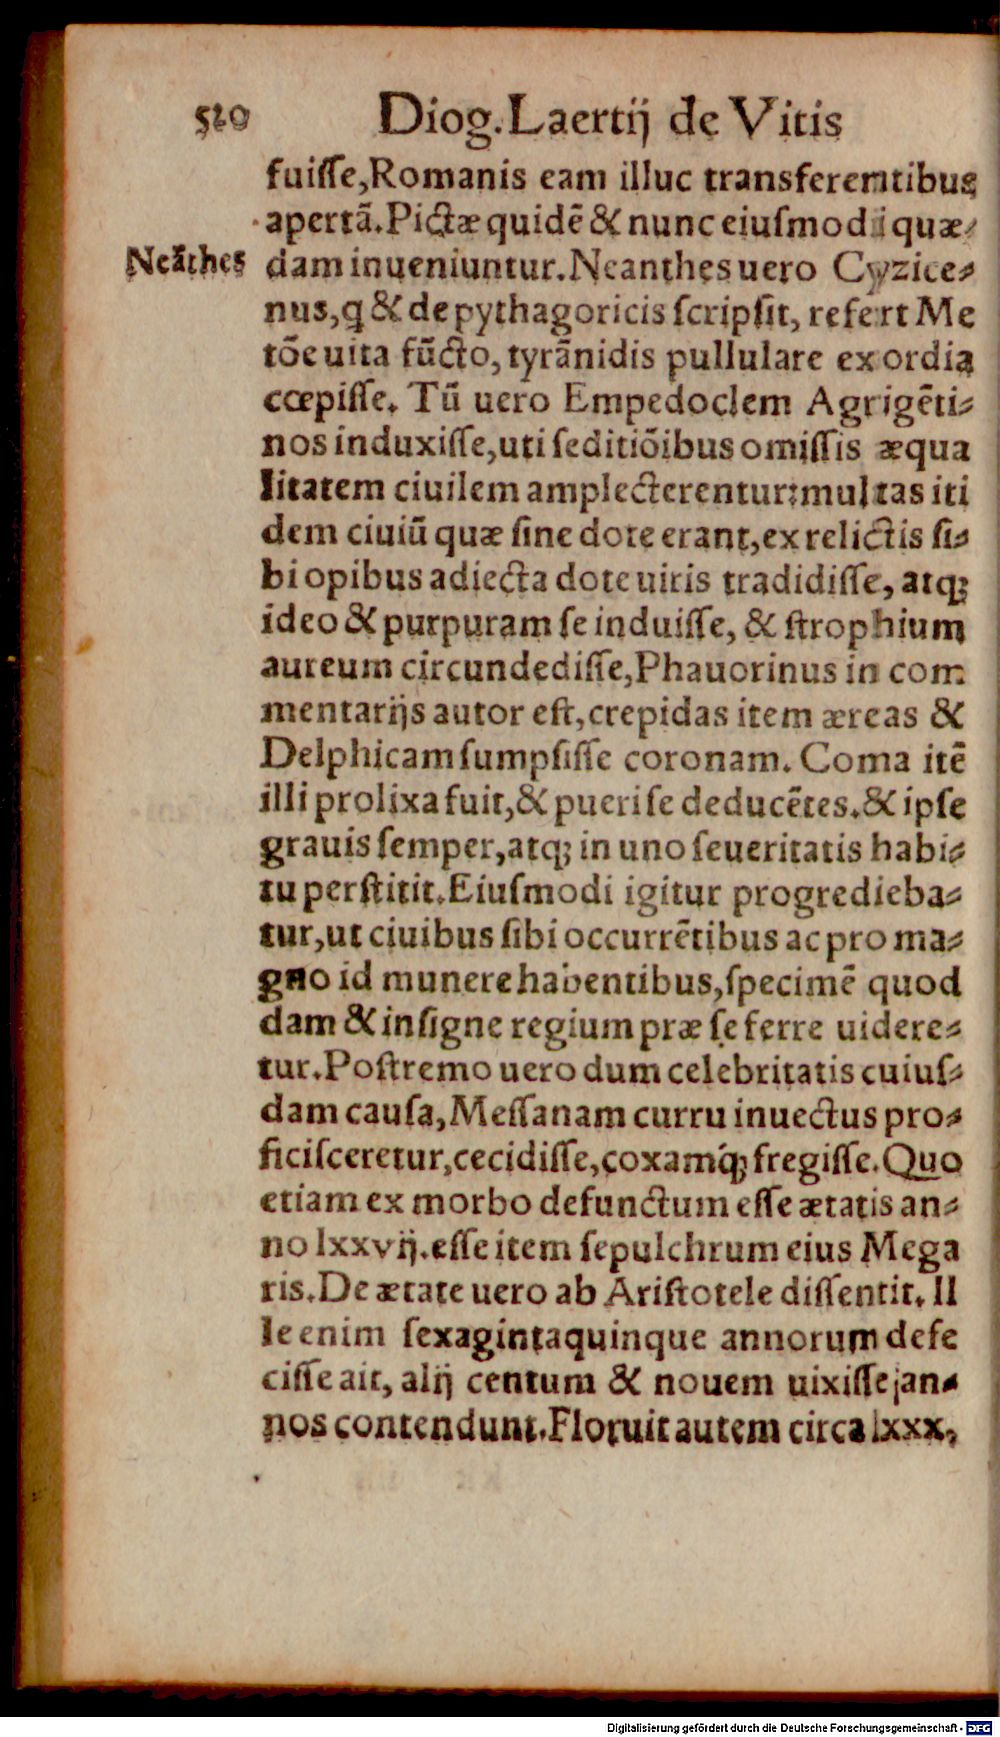 520 Diog. Laertij de Vitis
fuiſſe, Romanis eam illuc transferentibus
apertā. Pictæ quidē & nunc eiuſmodi quæ⸗
Neāthes
dam inueniuntur. Neanthes uero Cyzice⸗
nus, q & de pythagoricis ſcripſit, refert Me
tōe uita fūcto, tyrānidis pullulare exordia
cœpiſſe. Tū uero Empedoclem Agrigēti⸗
nos induxiſſe, uti ſeditiōibus omiſſis æqua
litatem ciuilem amplecterentur: multas iti
dem ciuiū quæ ſine dote erant, ex relictis ſi⸗
bi opibus adiecta dote uiris tradidiſſe, atq;
ideo & purpuram ſe induiſſe, & ſtrophium
aureum circundediſſe, Phauorinus in com
mentarijs autor eſt, crepidas item æreas &
Delphicam ſumpſiſſe coronam. Coma itē
illi prolixa fuit, & pueri ſe deducētes. & ipſe
grauis ſemper, atq; in uno ſeueritatis habi⸗
tu perſtitit. Eiuſmodi igitur progredieba⸗
tur, ut ciuibus ſibi occurrētibus ac pro ma⸗
gno id munere habentibus, ſpecimē quod
dam & inſigne regium præ ſe ferre uidere⸗
tur. Poſtremo uero dum celebritatis cuiuſ⸗
dam cauſa, Meſſanam curru inuectus pro⸗
ficiſceretur, cecidiſſe, coxamq́; fregiſſe. Quo
etiam ex morbo defunctum eſſe ætatis an⸗
no lxxvij. eſſe item ſepulchrum eius Mega
ris. De ætate uero ab Ariſtotele diſſentit. Il
le enim ſexagintaquinque annorum defe
ciſſe ait, alij centum & nouem uixiſſe an⸗
nos contendunt. Floruit autem circa lxxx,
Digitalisierung gefördert durch die Deutsche Forschungsgemeinschaft - DFG